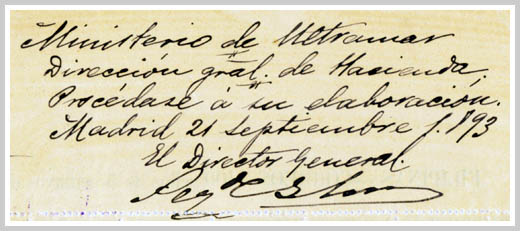 Ministerio de Ultramar
Dirección gral. de Hacienda,
Procédase á su elaboración.
Madrid 21 septiembre
El Director General.